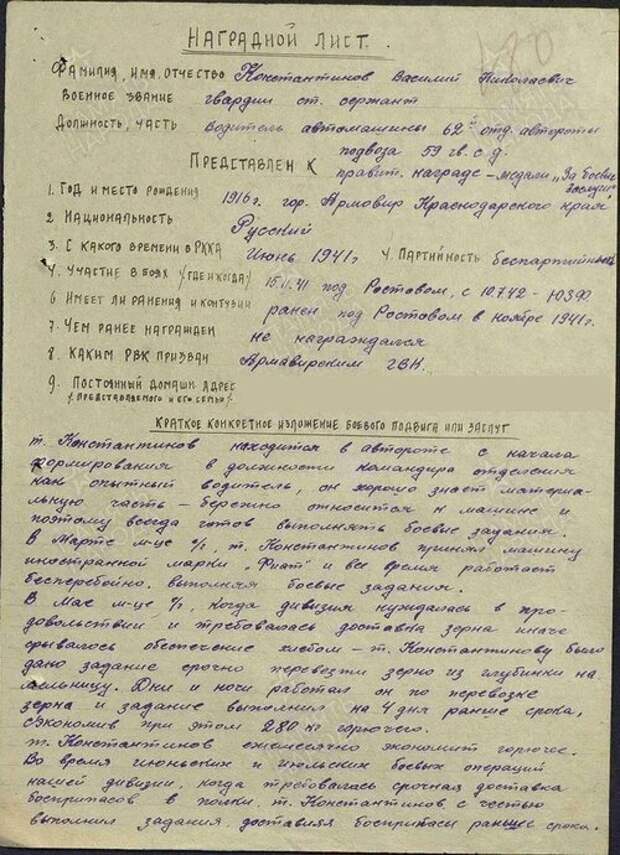 НАГРАДНОЙ ЛИСТ.
ФАМИЛИЯ, ИМЯ, ОТЧЕСТВО Константинов Василий Николаевич
ВОЕННОЕ ЗВАНИЕ гвардии ст. сержант
ДОЛЖНОСТЬ, ЧАСТЬ водитель автомашины 62й отд. автороты
подвоза 59 гв. с.д.
ПРЕДСТАВЛЕН К правит. награде - медали „За боевые
заслуги"
1. ГОД И МЕСТО РОЖДЕНИЯ 1916 г. гор. Армовир Краснодарского края
2 НАЦИОНАЛЬНОСТЬ Русский
3. С КАКОГО ВРЕМЕНИ В РККА Июнь 1941 г 4. ПАРТИЙНОСТЬ беспартийный
4. УЧАСТИЕ В БОЯХ /ГДЕ И КОГДА/ 15.11.41 под Ростовом, с 10.7.42 - ЮЗФ
6 ИМЕЕТ ЛИ РАНЕНИЯ И КОНТУЗИИ ранен под Ростовом в ноябре 1941 г.
7. ЧЕМ РАНЕЕ НАГРАЖДЕН не награждался
8. КАКИМ РВК ПРИЗВАН Армавирским ГВК.
9. ПОСТОЯННЫЙ ДОМАШН. АДРЕС
/ПРЕДСТАВЛЯЕМОГО И ЕГО СЕМЬИ/
КРАТКОЕ КОНКРЕТНОЕ ИЗЛОЖЕНИЕ БОЕВОГО ПОДВИГА ИЛИ ЗАСЛУГ
т. Константинов находится в автороте с начала
формирования в должности командира отделения
как опытный водитель, он хорошо знает материа-
льную часть - бережно относится к машине и
поэтому всегда готов выполнять боевые задания.
В Марте м-це с/г, т. Константинов принял машину
иностранной марки „Фиат" и все время работает
бесперебойно, выполняя боевые задания.
В Мае м-це с/г, когда дивизия нуждалась в про-
довольствии и требовалась доставка зерна иначе
срывалось обеспечение хлебом - т. Константинову было
дано задание срочно перевезти зерно из глубинки на
мельницу. Дни и ночи работал он по перевозке
зерна и задание выполнил на 4 дня раньше срока,
сэкономив при этом 280 кг горючего.
т. Константинов ежемесячно экономит горючее.
Во время июньских и июльских боевых операций
нашей дивизии, когда требовалась срочная доставка
боеприпасов в полки, т. Константинов с честью
выполнил задания, доставляя боеприпасы раньше срока.